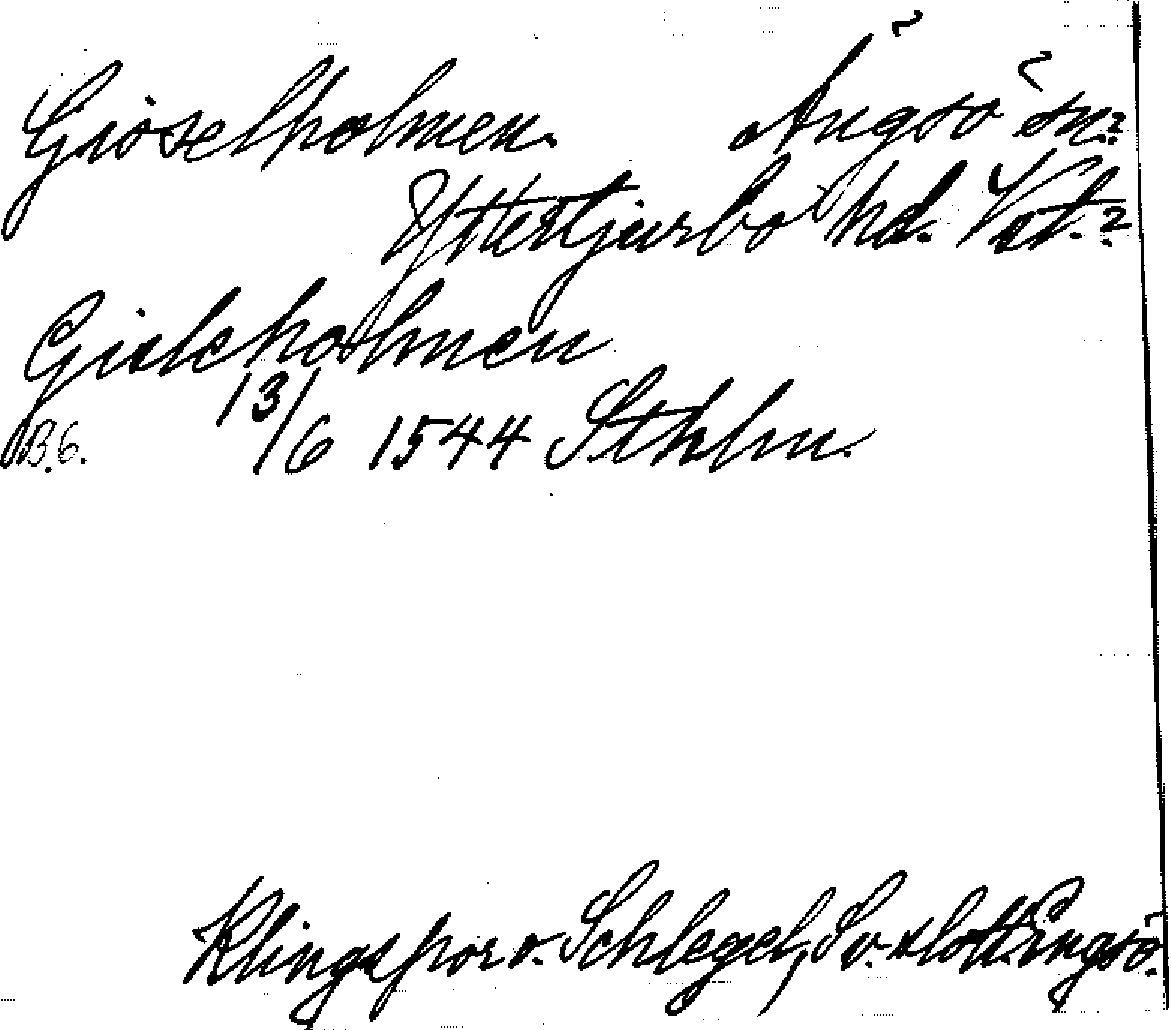 Gröselholmen. Ängsö sn?
Yttertjurbo hd. Vst.?
Gisleholmen
B.6. 13/6 1544 Sthlm.
Klingspor o. Schlegel, Sv. slott. Engsö.